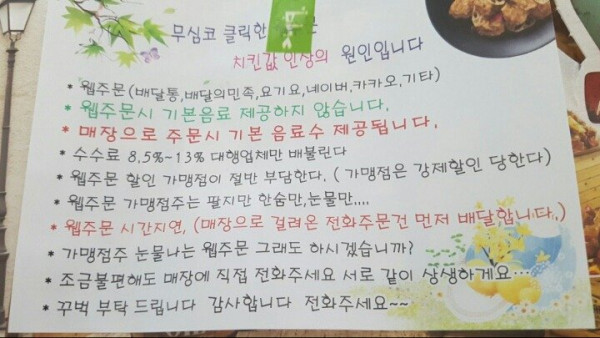 무심코 클릭한 문
치킨값 인상의 원인입니다
* 웹주문(배달통,배달의민족,요기요,네이버,카카오,기타)
* 웹주문시 기본음료 제공하지 않습니다.
* 매장으로 주문시 기본 음료수 제공됩니다.
* 수수료 8,5%-13% 대행업체만 배불린다
* 웹주문 할인 가맹점이 절반 부담한다. ( 가맹점은 강제할인 당한다)
* 웹주문 가맹점주는 팔지만 한숨만,눈물만....
* 웹주문 시간지연, (매장으로 걸려온 전화주문건 먼저 배달합니다.)
* 가맹점주 눈물나는 웹주문 그래도 하시겠습니까?
* 조금불편해도 매장에 직접 전화주세요 서로 같이 상생하게요...
* 꾸벅 부탁 드립니다 감사합니다 전화주세요~~